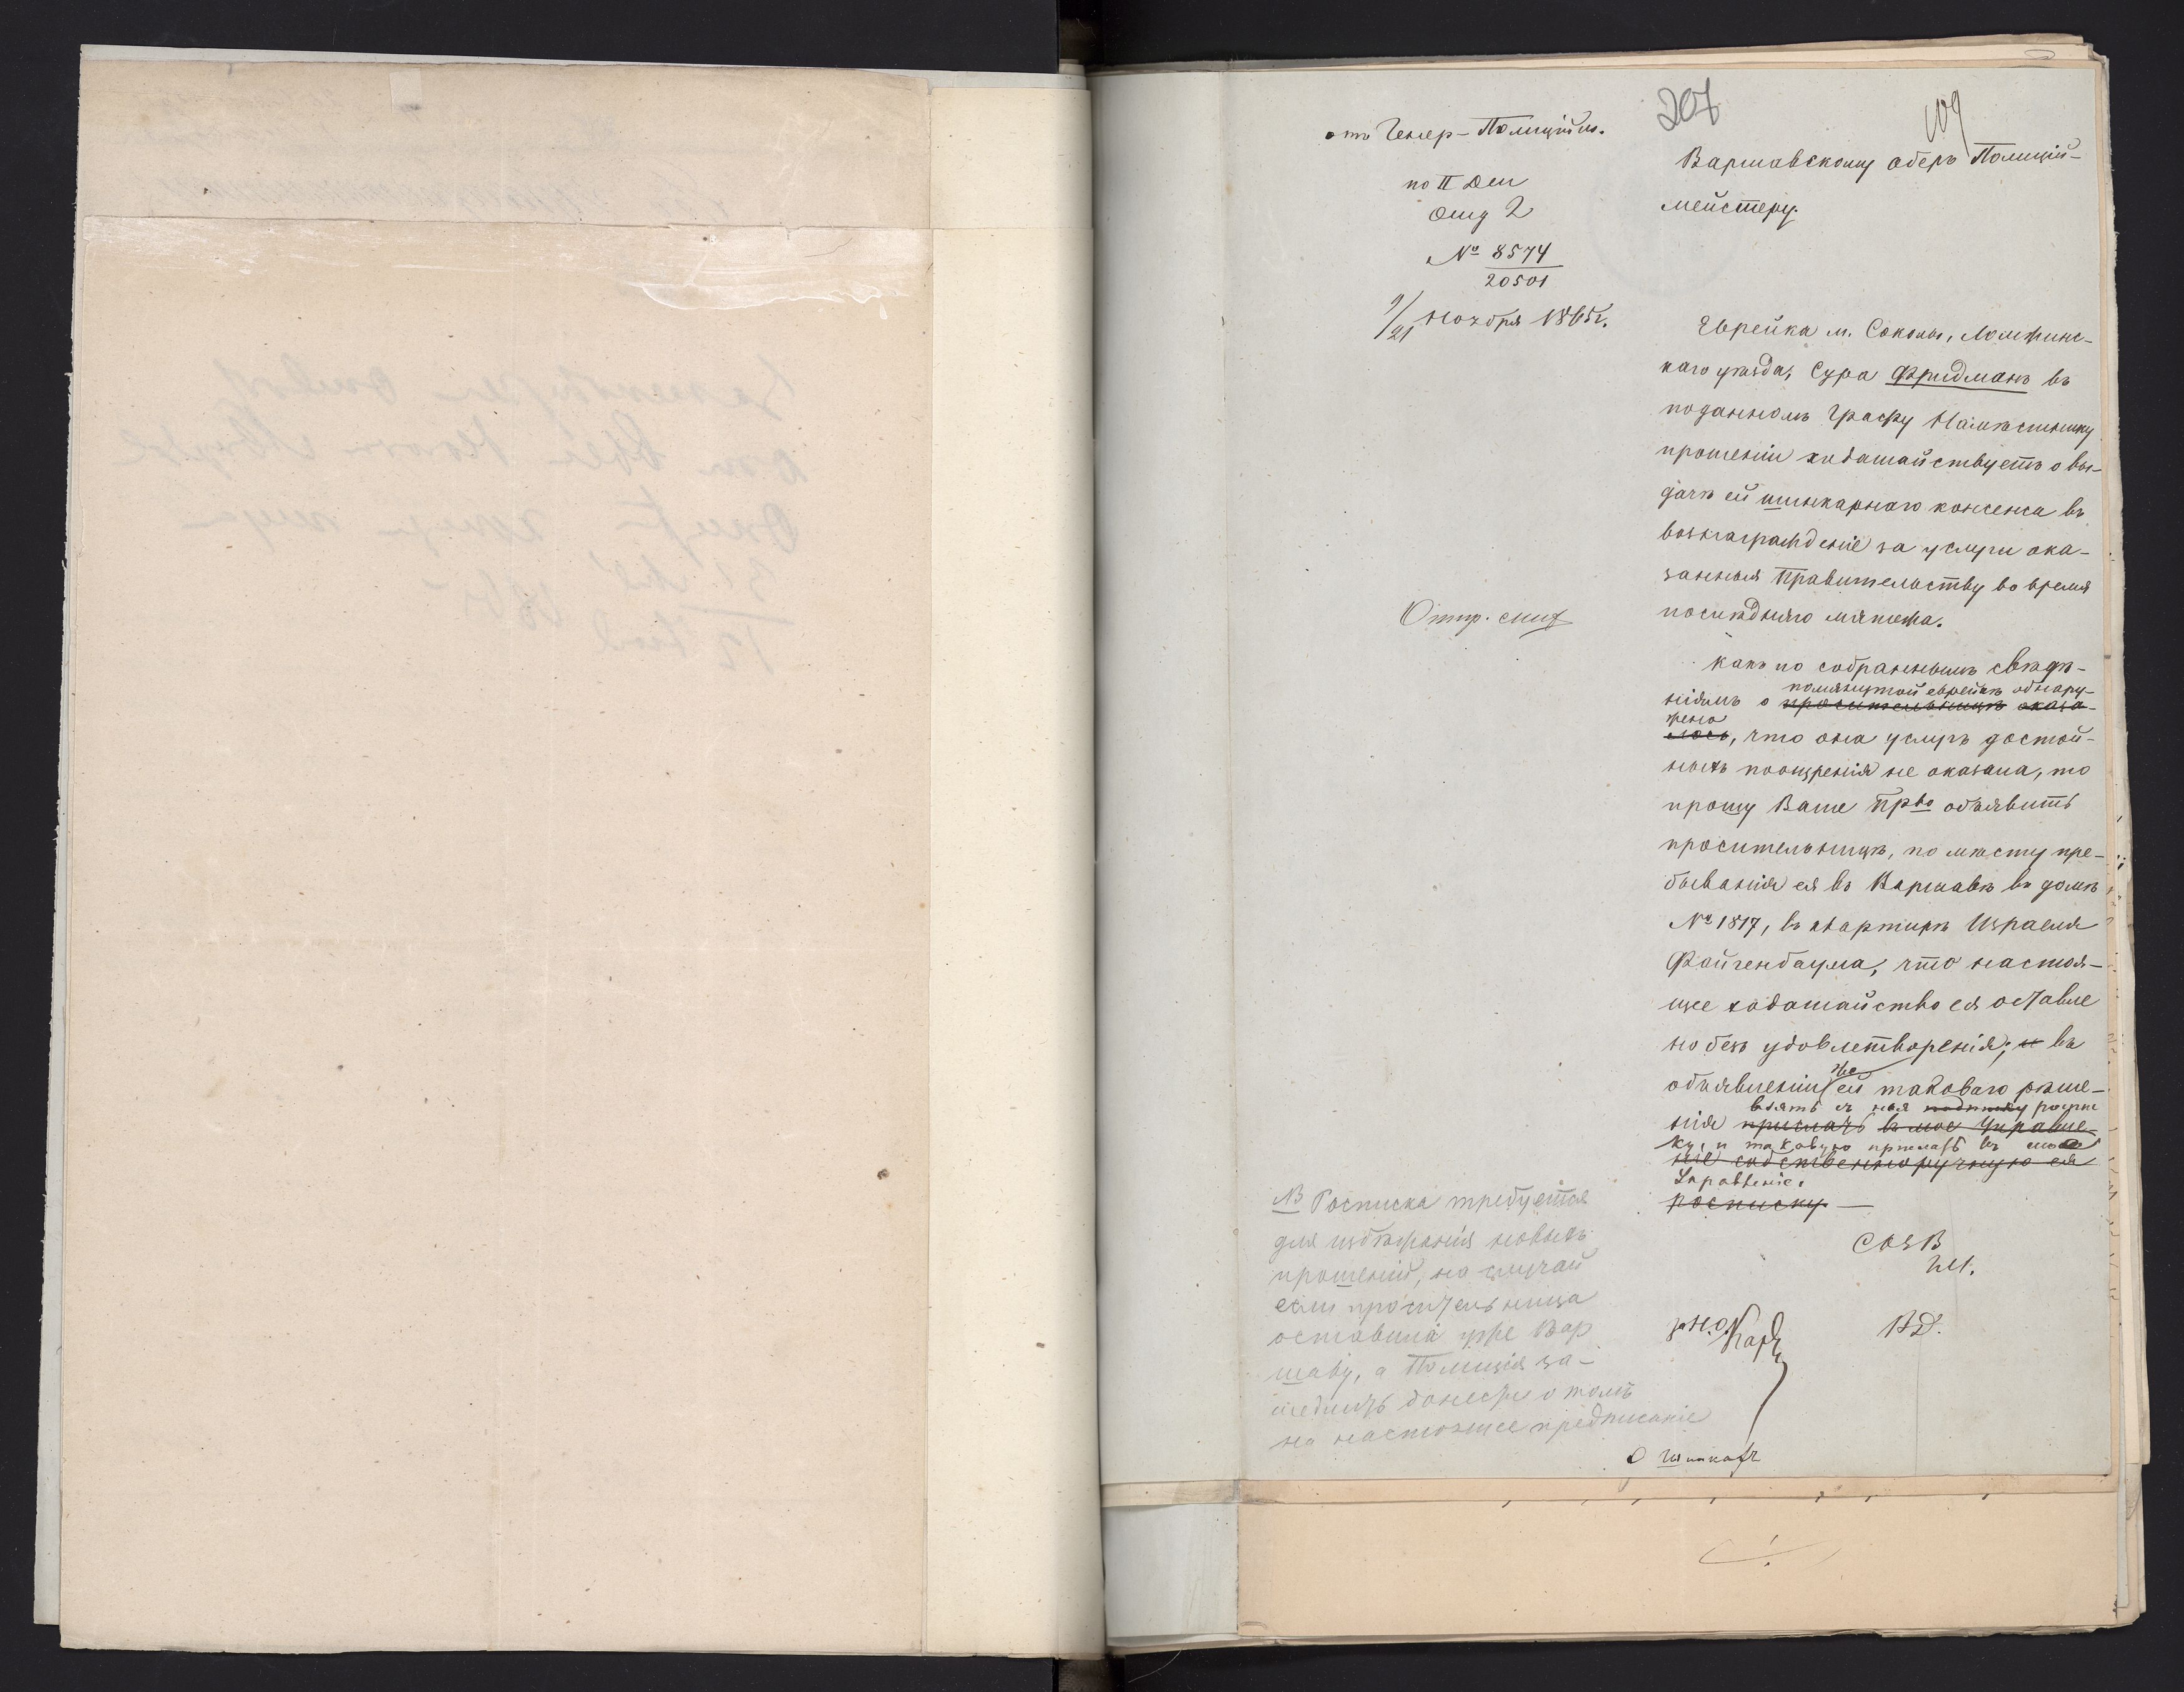 207
109
отъ Генер-Полиційм.
по II Деи
Отд 2
№ 8574
20501
9/21 ноября 1865г.
Варшавскому оберъ Полицій-
мейстеру.
Еврейка м. Соколы, Ломжинс-
каго уѣзда, Сура Фридманъ въ
поданномъ Графу Намѣстнику
прошеніи ходатайствуетъ о вы-
дачѣ ей шинкарнаго консенса въ
вознагражденіе за услуги ока-
занныя Правительству во время
послѣдняго мятежа.
Отпр.
какъ по собраннымъ свѣдѣ-
помянутой еврейкѣ обнару-
ніямъ о просительницѣ оказа-
жено
лось, что она услугъ достой-
ныхъ поощренія не оказала, то
прошу Ваше Прво объявить
просительницѣ, по мѣсту пре-
быванія ея въ Варшавѣ въ домѣ
№ 1817, въ квартирѣ Израеля
Файгенбаума, что настоя-
щее ходатайство ея оставле
но безъ удовлетворенія; и въ
же
объявленіи ей таковаго рѣше-
взять съ нея подписку роспис
нія прислать въ мое Управле-
ку, и таковую прислать въ мое
ніе собственноручную ея
Управленіе.
росписку. —
NB Росписка требуется
для избѣжанія новыхъ
прошеній, на случай
если просительница
оставила уже Вар
шаву, а Полиція за-
медлитъ донести о томъ
на настоящее предписаніе
ВД.
О шинкахъ